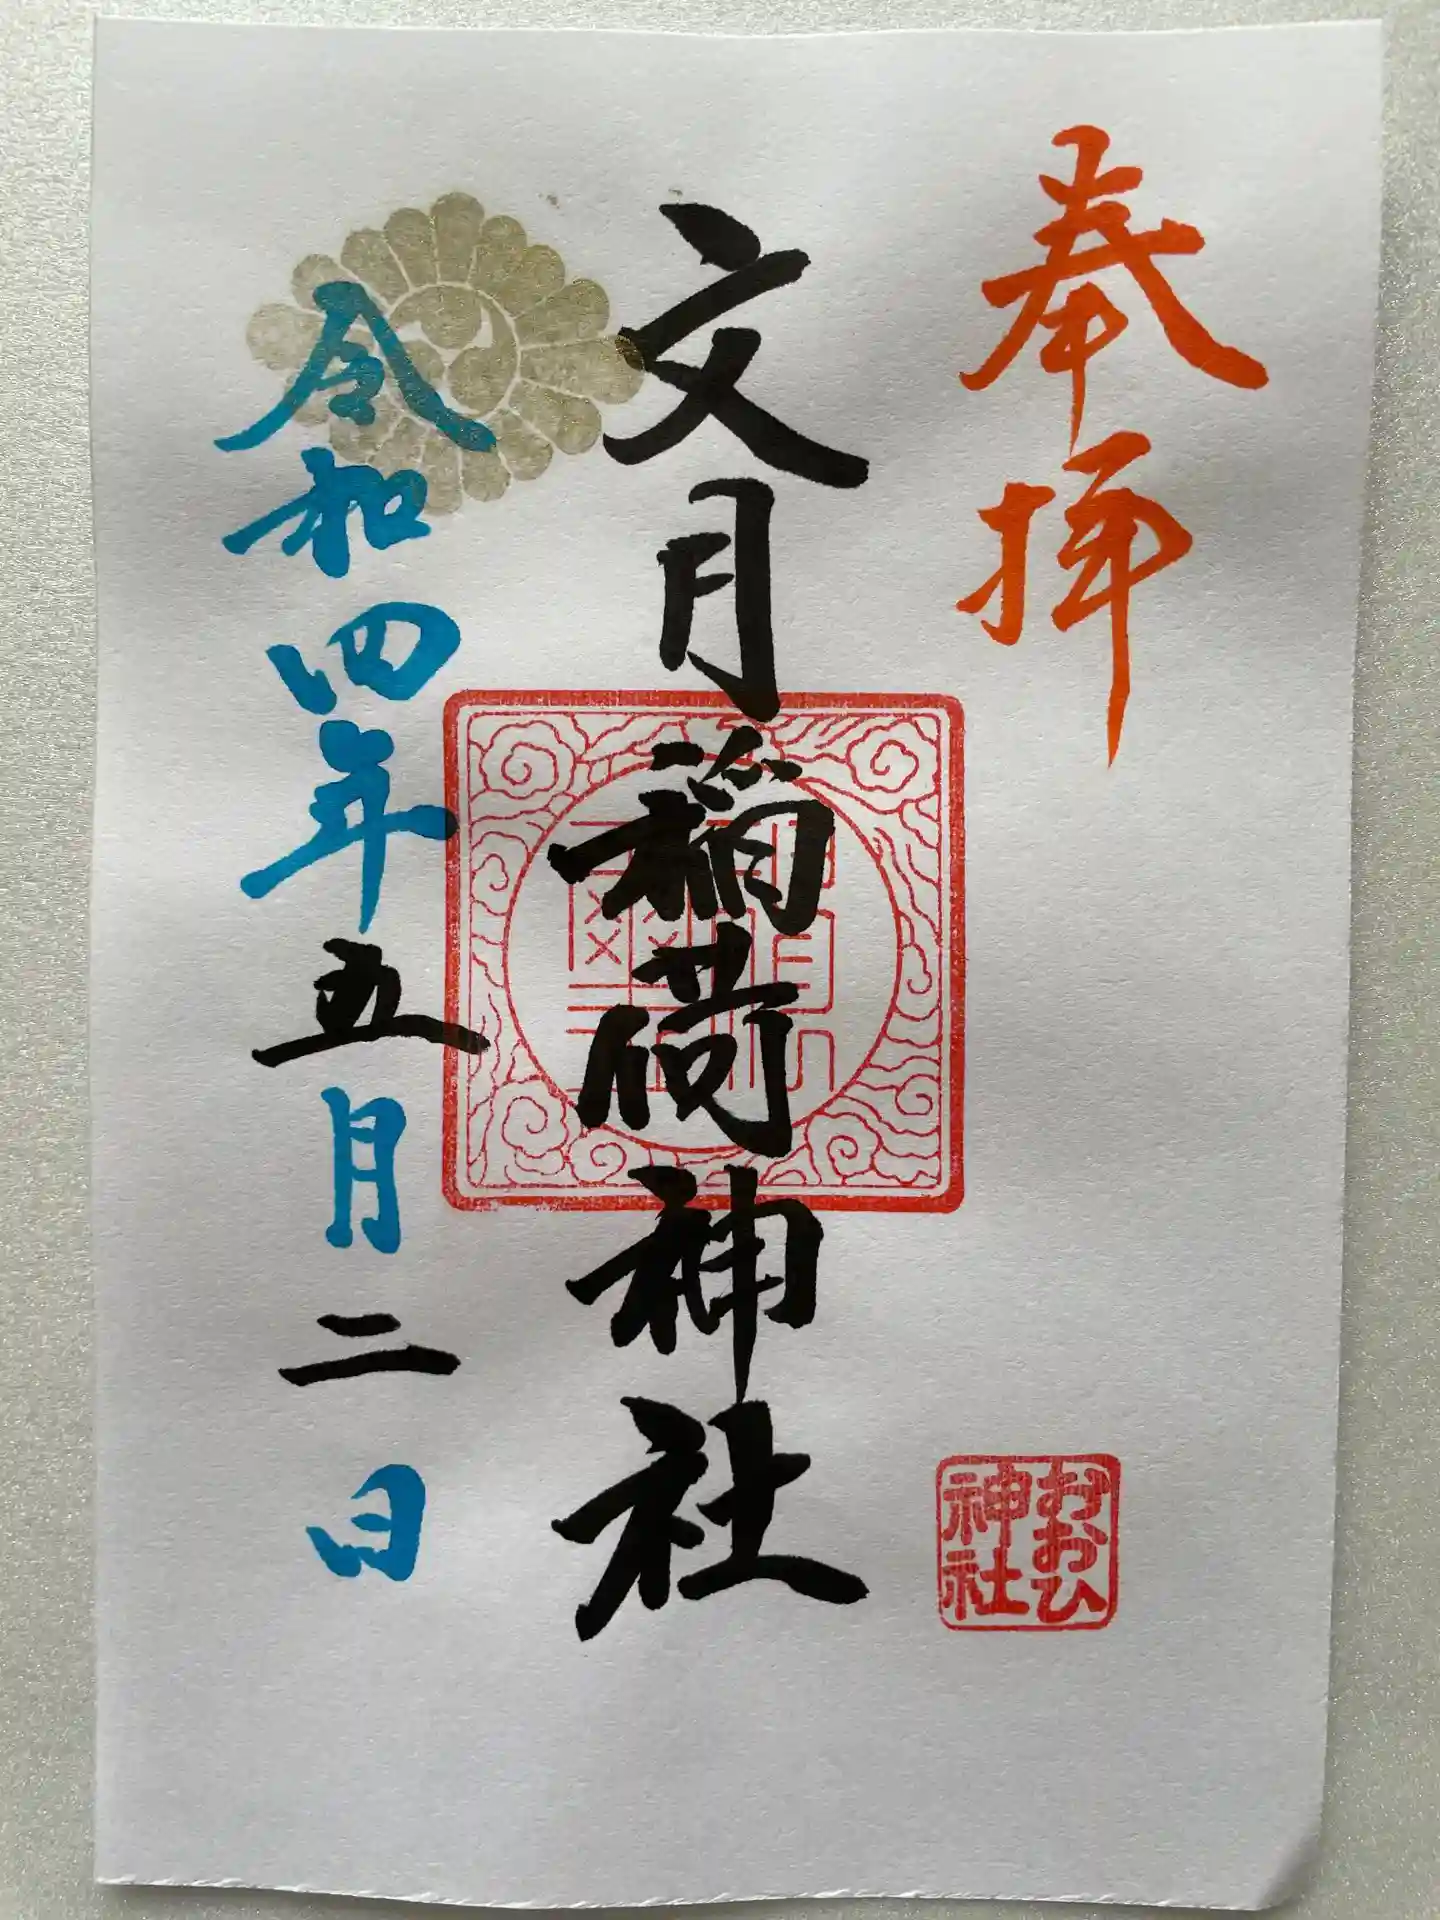 奉拝
文月稲荷神社
令和四年五月二日
おおひ
神社